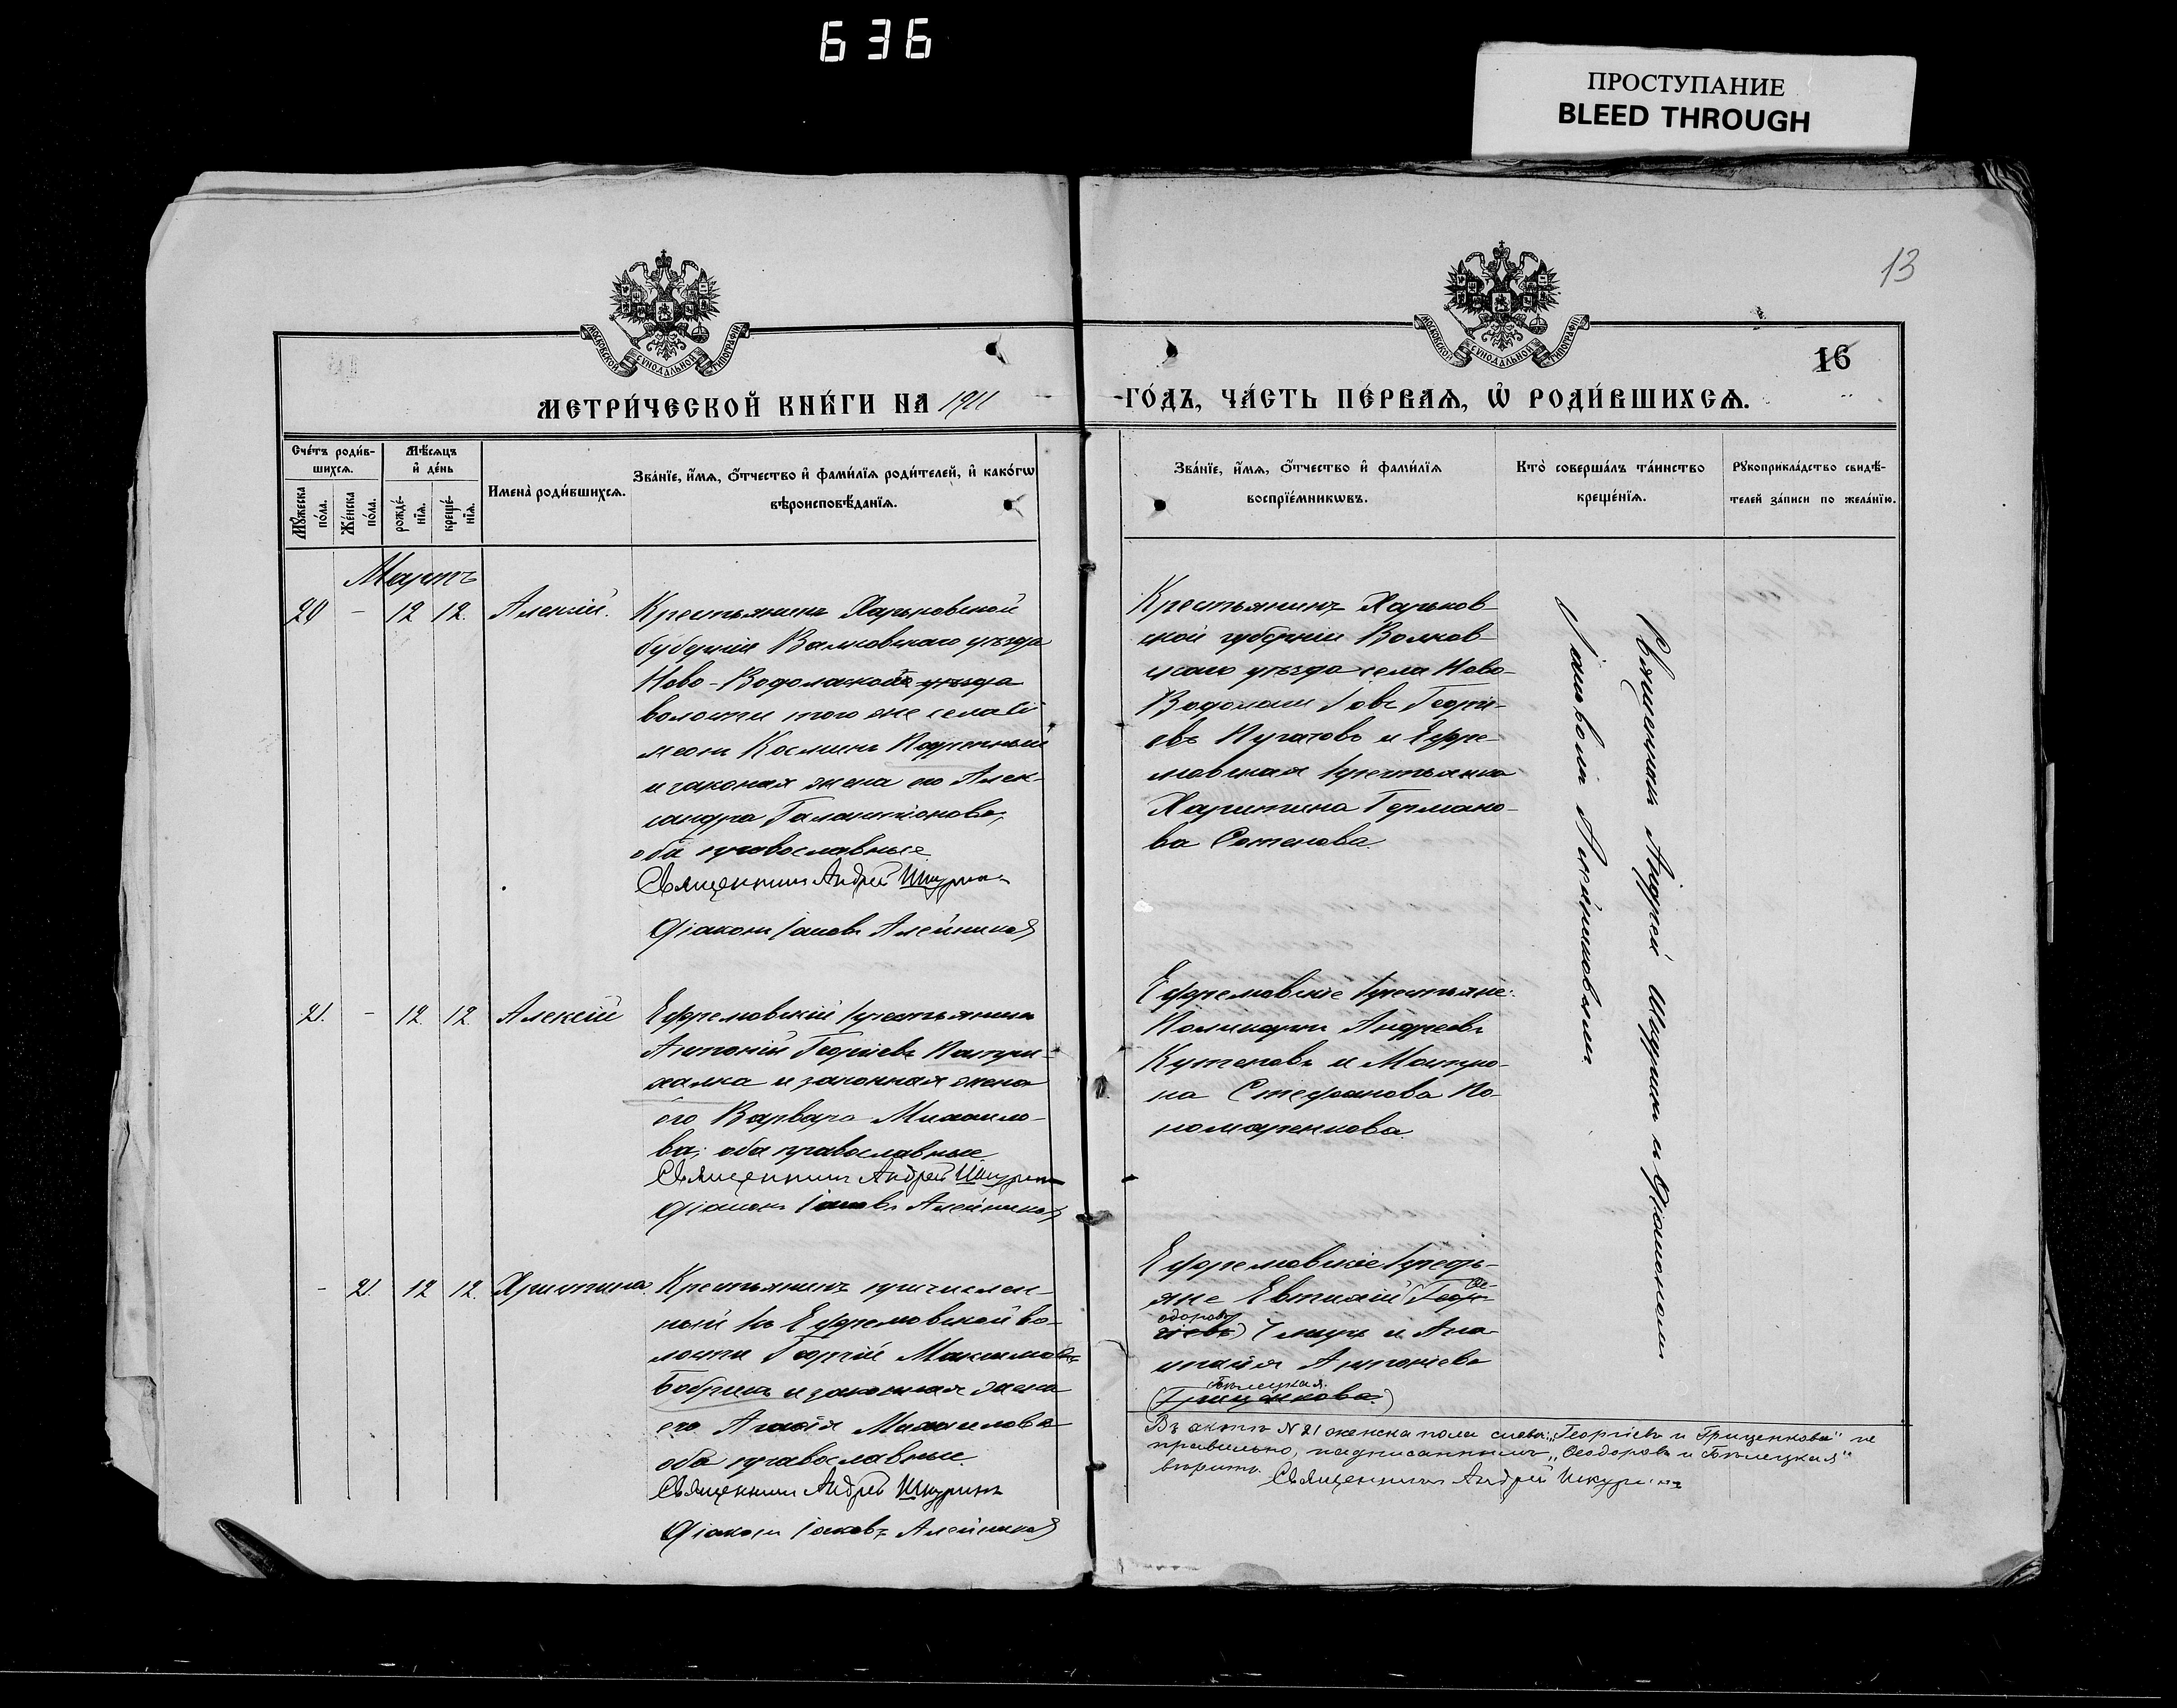 636
ПРОСТУПАНИЕ
BLEED THROUGH
13
МОСКОВСКОЙ СѴНОДАЛЬНОЙ ТИПОГРАФІИ
МОСКОВСКОЙ СѴНОДАЛЬНОЙ ТИПОГРАФІИ
16
МЕТРИ́ЧЕСКОЙ КНИ́ГИ НА 1911
ГО́ДЪ, ЧА́СТЬ ПЕ́РВАѦ, Ѡ РОДИ́ВШИХСѦ.
Сче́тъ роди́в-
шихсѧ.
Мѣ́сѧцъ
и҆ де́нь
Мꙋ́жеска
по́ла.
Же́нска
по́ла.
рожде́-
нїѧ.
креще́-
нїѧ.
Имена̀ роди́вшихсѧ.
Зва́нїе, и҆́мѧ, ѻ҆́тчество и҆ фами́лїѧ роди́телей, и҆ како́гѡ
вѣроисповѣ́данїѧ.
Зва́нїе, и҆́мѧ, ѻ҆́тчество и҆ фами́лїѧ
воспрїе́мникѡвъ.
Кто̀ соверша́лъ та́инство
креще́нїѧ.
Рꙋкоприкла́дство свидѣ́-
телей за́писи по жела́нїю.
Мартъ
20 - 12 12. Алексій.
Крестьянинъ Харьковской
губерніи Валковскаго уѣзда
Ново-Водолажской уѣзда
волости того же села
Косминъ
и законная жена его Алек-
сандра Галактіонова,
оба православные.
Священникъ Андрей Шкуринъ
Діаконъ Іаковъ Алейников
Крестьянинъ Харьков-
ской губерніи Волков-
скаго уѣзда села Ново-
Водолаги Іовъ Георгі-
евъ Пугачовъ и Ефре-
мовская крестьянка
Харитина Германо-
ва Сотенова.
Священникъ Андрей Шкуринъ и Діакономъ
Іаковомъ Алейниковымъ.
21. - 12. 12. Алексій
Ефремовскій крестьянинъ
Антоній Георгіевъ
и законная жена
его Варвара Михаило-
ва; оба православные
Священникъ Андрей Шкуринъ
Діаконъ Іаковъ Алейников
Ефремовскіе крестьяне:
Поликарпъ Андреевъ
Кутеповъ и Матро-
на Стефанова По-
номаренкова.
- 21. 12 12. Христина.
Крестьянинъ причислен-
ный къ Ефремовской во-
лости Георгій Максимовъ
Бобрикъ и законная жена
его Агафія Михаилова
оба православные.
Священникъ Андрей Шкуринъ
Діаконъ Іаковъ Алейников
Ефремовскіе кресть-
яне Евтихій (Геор- Ѳе-
гіевъ) одоровъ и Ана-
стасія Антоніева
Бѣлецкая.
(Гриценкова.)
Въ актѣ № 21 женска пола слова: „Георгіевъ и Гриценкова" не
правильно, надписаннымъ „Ѳеодоровъ и Бѣлецкая"
вѣрить. Священникъ Андрей Шкуринъ